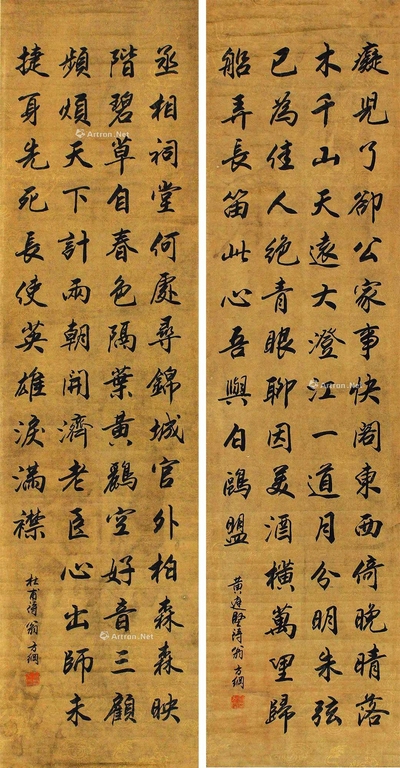 癡兒了卻公家事快閣東西倚晚晴落
木千山天遠大澄江一道月分明朱弦
已為佳人絕青眼聊因美酒橫萬里歸
船弄長笛此心吾與白鷗盟
黃庭堅詩翁方綱
丞相祠堂何處尋錦城官外柏森森映
階碧草自春色隔葉黃鸝空好音三顧
頻煩天下計兩朝開濟老臣心出師未
捷身先死長使英雄淚滿襟
杜甫詩翁方綱
Artron.Net
Artron.Net
Artron.Net
Artron.Net